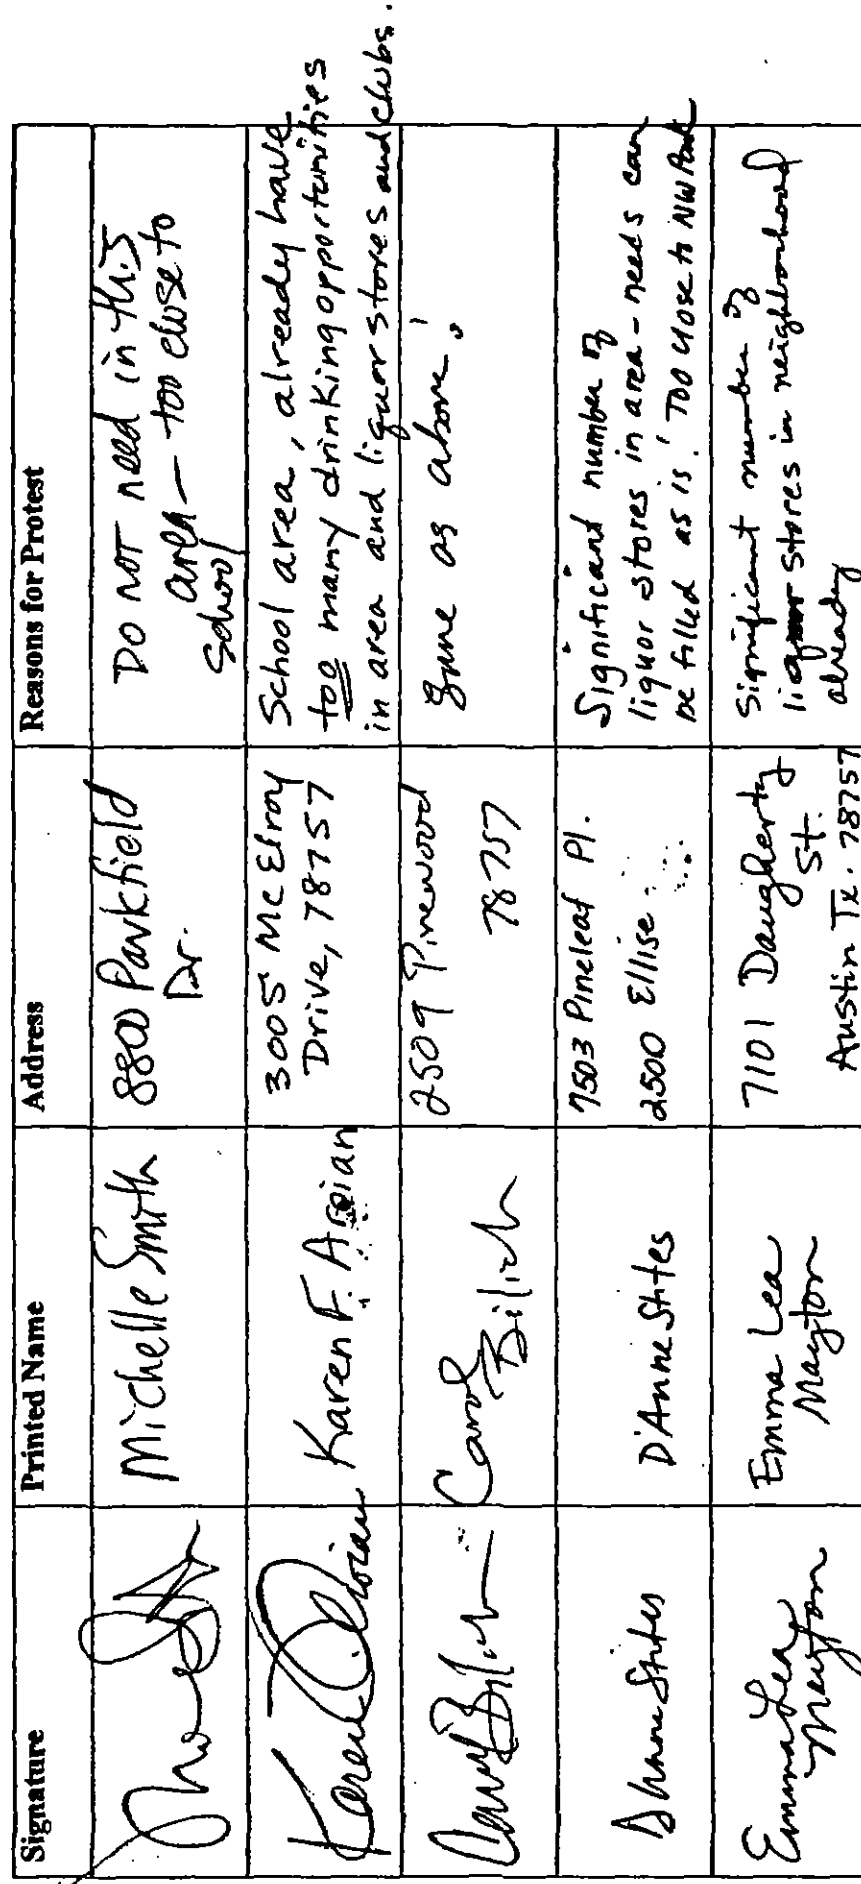 Signature Printed Name Address Reasons for Protest
Michelle Smith
8800 Parkfield
Dr.
Do not need in this
area — too close to
school
Karen F. Aroian
3005 McElroy
Drive, 78757
School area, already have
too many drinking opportunities
in area and liquor stores and clubs.
Carol Bilich
Carol
Bilich
2509 Pinewood
78757
Same as above!
D'Anne Stites
D'Anne Stites
7503 Pineleaf Pl.
2500 Ellise
Significant number of
liquor stores in area - needs can
be filled as is! Too close to NW Park
Emma Lea
Mayton
Emma Lea
Mayton
7101 Daugherty
St.
Austin Tx. 78757
Significant number of
liquor stores in neighborhood
already